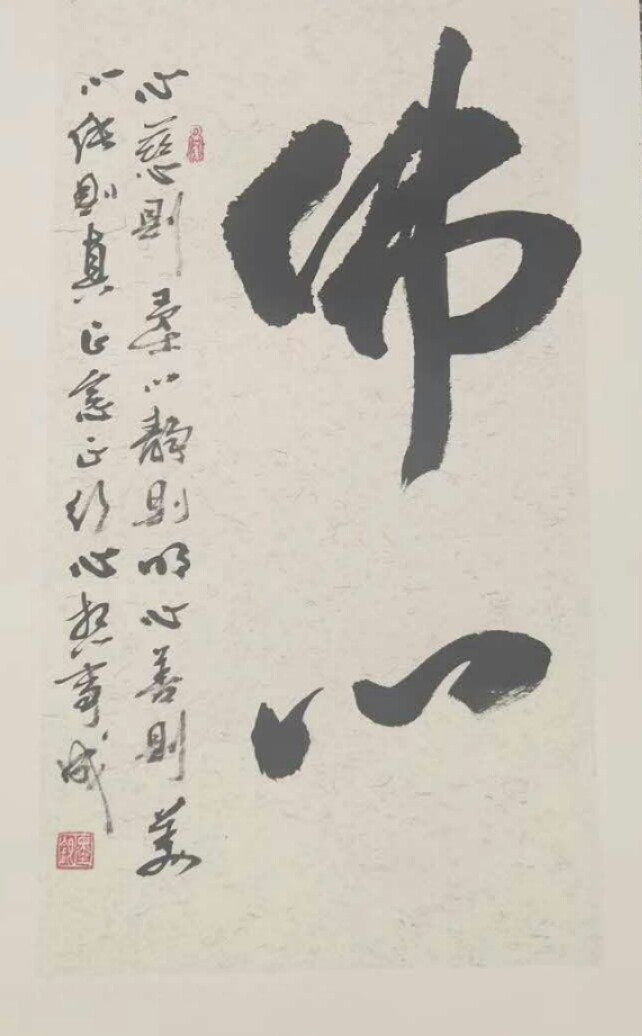 佛心
心慈則柔心靜則明心善則美
心則真正念正行心想事成